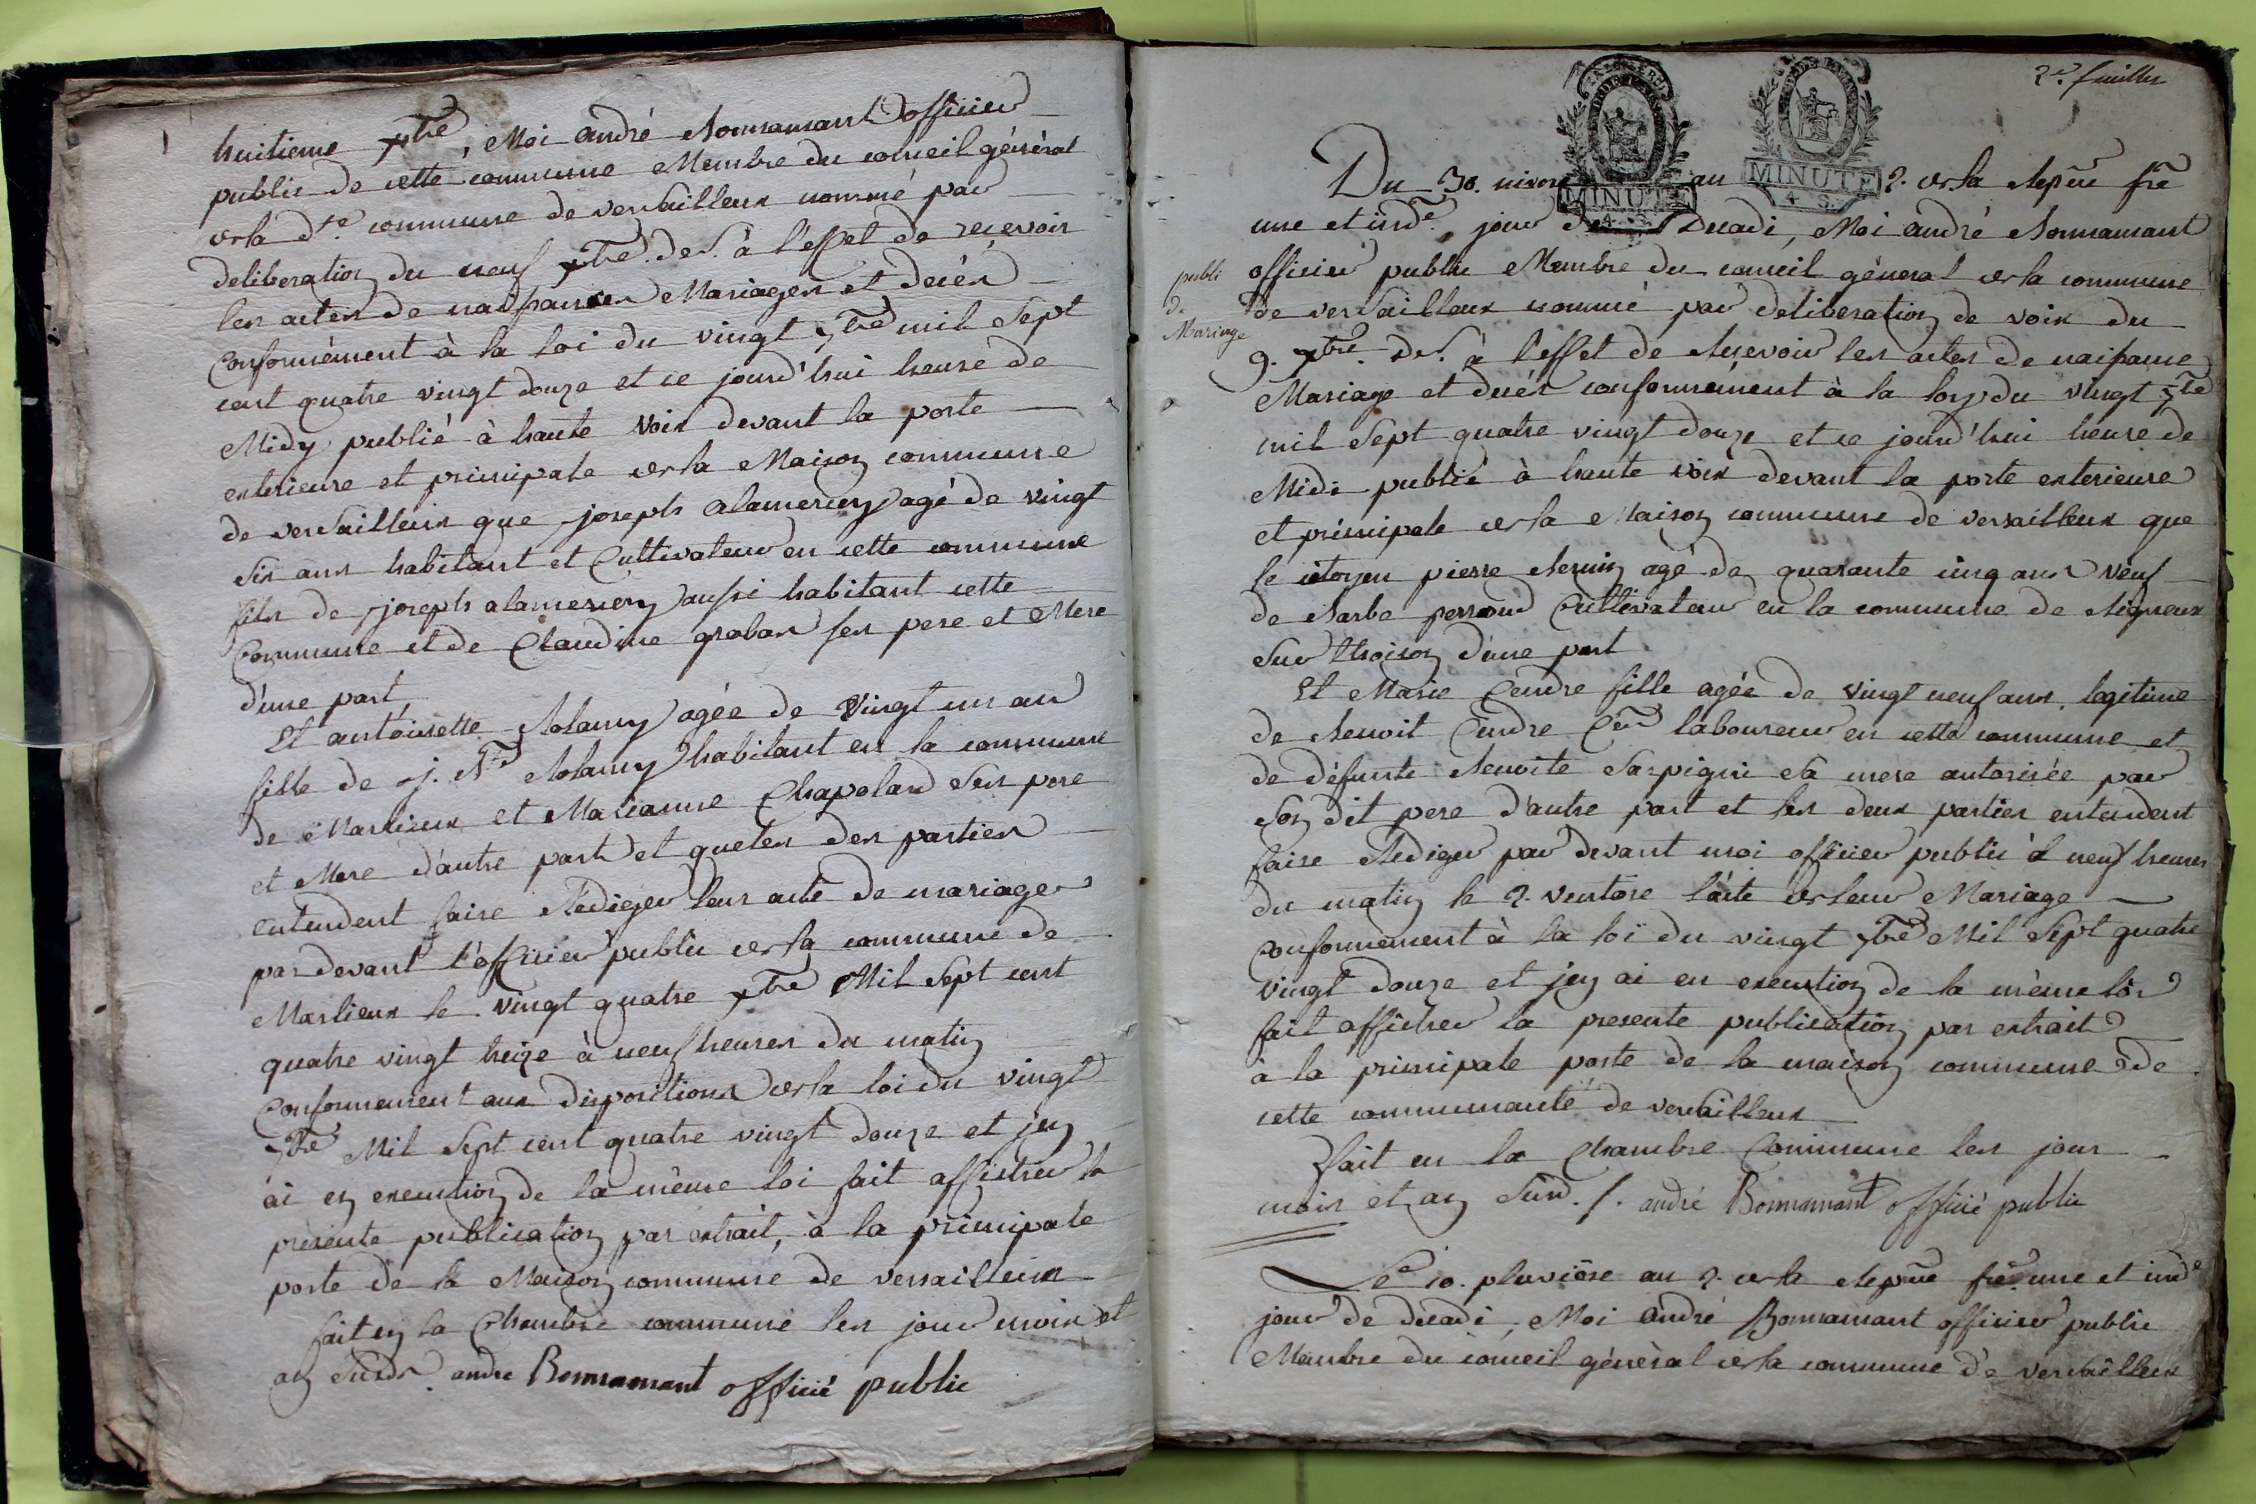 huitieme xbre, Moi andré Bonnamant officier
public de cette commune Membre du conseil général
de la dte. commune de versailleux nommé par
deliberation du neuf xbre. der. à l'effet de recevoir
les actes de naissances Mariages et decés
Conformément à la loi du vingt 7bre mil Sept
cent quatre vingt douze et ce jourd'hui heure de
Midy publié à haute voix devant la porte
exterieure et principale de la Maison commune
de versailleux que joseph alamercery agé de vingt
six ans habitant et Cultivateur en cette commune
fils de joseph alamercery aussi habitant cette
Commune et de Claudine graban ses pere et Mere
d'une part,
Et antoinette agée de vingt un an
fille de j. Bte habitant en la commune
de Marlieux et Marianne Chapeland Ses pere
et Mere d'autre part et queles des parties
entendent faire Rediger leur acte de mariage
par devant l'officier public de la commune de
Marlieux le vingt quatre xbre Mil Sept cent
quatre vingt treize à neuf heures du matin
Conformement aux dispositions de la loi du vingt
7bre Mil Sept cent quatre vingt douze et jen
ai en execution de la même loi fait afficher la
présente publication par extrait, à la principale
porte de la Maison commune de versailleux
fait en la Chambre commune les jour mois et
an Susds. andre Bonnamant officié public
2e. feuillet
MINUTE
4 S.
MINUTE
4 S.
publi
de
Mariage
Du 30. nivose an 2. de la Repue fre
une et indle. jour de Decadi, Moi andré Bonnamant
officier public Membre du conseil géneral de la commune
de versailleux nommé par deliberation de voix du
9. xbre. der. à l'effet de Recevoir les actes de naissance
Mariage et decés conformément à la loy du vingt 7bre
mil Sept quatre vingt douze et ce jourd'hui heure de
Midi publié à haute voix devant la porte exterieure
et principale de la Maison commune de versailleux que
le citoyen pierre agé de quarante cinq ans veuf
de Barbe perroud Cultivateur en la commune de Rigneux
Sur d'une part
Et Marie Cendre fille agée de vingt neuf ans, legitime
de Benoit Cendre Cen laboureur en cette commune et
de défunte Benoite Sa mere autorisée par
Son dit pere d'autre part et les deux parties entendent
faire Rediger par devant moi officier public à neuf heures
du matin le 2. ventose l'acte de leur Mariage
Conformement à la loi du vingt 7bre Mil Sept quatre
vingt douze et jen ai en execution de la même loi
fait afficher la presente publication par extrait
à la principale porte de la maison commune de
cette communauté de versailleux
fait en la Chambre Commune les jour
mois et an Susd. /. andré Bonnamant officié public
Le 10. pluviôse an 2. de la Repue fre une et indle
jour de decadi, Moi andré Bonnamant officier public
Membre du conseil général de la commune de versailleux